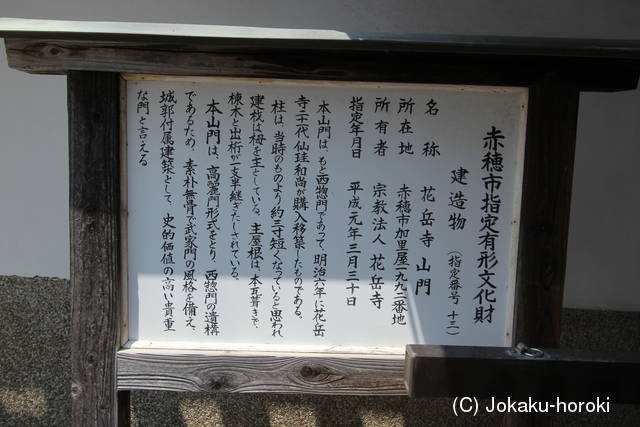 赤穂市指定有形文化財
建造物（指定番号 十三）
名称 花岳寺山門
所在地 赤穂市加里屋一九九二番地
所有者 宗教法人 花岳寺
指定年月日 平成元年三月三十日
本山門は、もと西惣門であって、明治六年に花岳
寺二十代仙珪和尚が購入移築したものである。
柱は、当時のものより約三寸短くなっていると思われ
建枝は栂を主としている。主屋根は、本瓦葺きで、
棟木と出桁が一支半継ぎたしされている。
本山門は、高麗門形式をとり、西惣門の遺構
であるため、素朴無骨で武家門の風格を備え、
城郭付属建築として、史的価値の高い貴重
な門と言える
(C) Jokaku-horoki